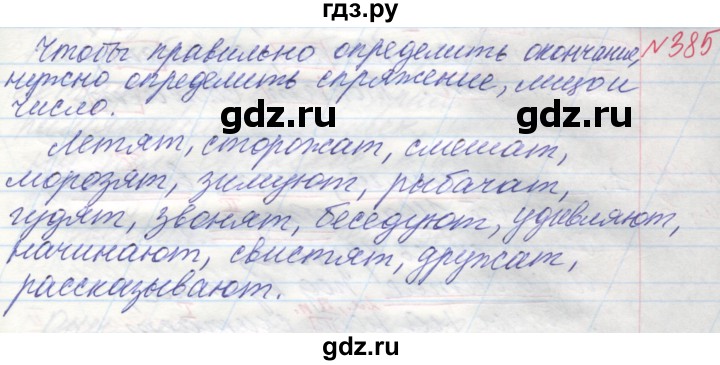 гдз.ру
Чтобы правильно определить окончание, №385
нужно определить спряжение, лицо и
число.
gdz.ru gdz.ru
Летят, сторожат, смешат,
морозят, зимуют, рыбачат,
гудят, звонят, беседуют, удивляют,
gdz.ru gdz.ru
начинают, свистят, дружат,
рассказывают.
gdz.ru